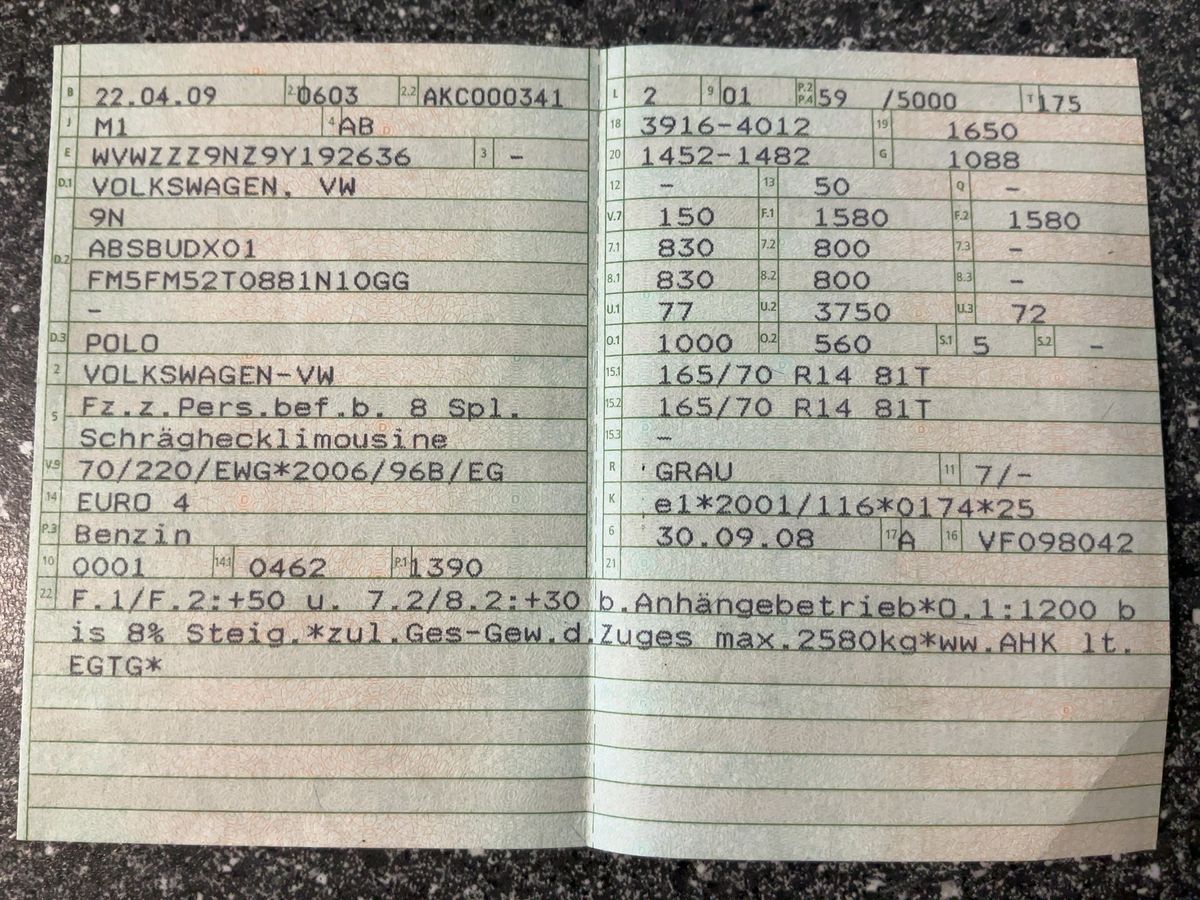 B 22.04.09 2.1 0603 2.2 AKC000341
J M1 4 AB
E WVWZZZ9NZ9Y192636 3 –
D.1 VOLKSWAGEN, VW
9N
D.2 ABSBUDX01
FM5FM52T0881N10GG
–
D.3 POLO
2 VOLKSWAGEN-VW
5 Fz.z.Pers.bef.b. 8 Spl.
Schräghecklimousine
V.9 70/220/EWG*2006/96B/EG
14 EURO 4
P.3 Benzin
10 0001 14.1 0462 P.1 1390
L 2 9 01 P.2 P.4 59 /5000 T 175
18 3916-4012 19 1650
20 1452-1482 G 1088
12 – 13 50 Q –
V.7 150 F.1 1580 F.2 1580
7.1 830 7.2 800 7.3 –
8.1 830 8.2 800 8.3 –
U.1 77 U.2 3750 U.3 72
O.1 1000 O.2 560 S.1 5 S.2 –
15.1 165/70 R14 81T
15.2 165/70 R14 81T
15.3 –
R GRAU 11 7/-
K e1*2001/116*0174*25
6 30.09.08 17 A 16 VF098042
21
22 F.1/F.2:+50 u. 7.2/8.2:+30 b.Anhängebetrieb*O.1:1200 b
is 8% Steig.*zul.Ges-Gew.d.Zuges max.2580kg*ww.AHK lt.
EGTG*